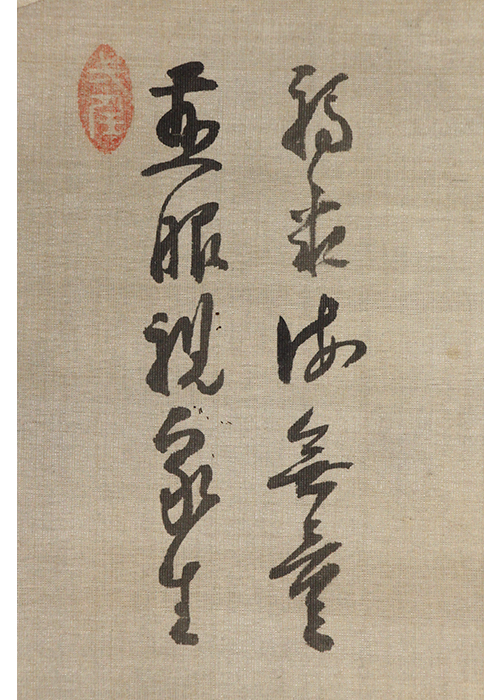 福聚海無量
慈眼視衆生